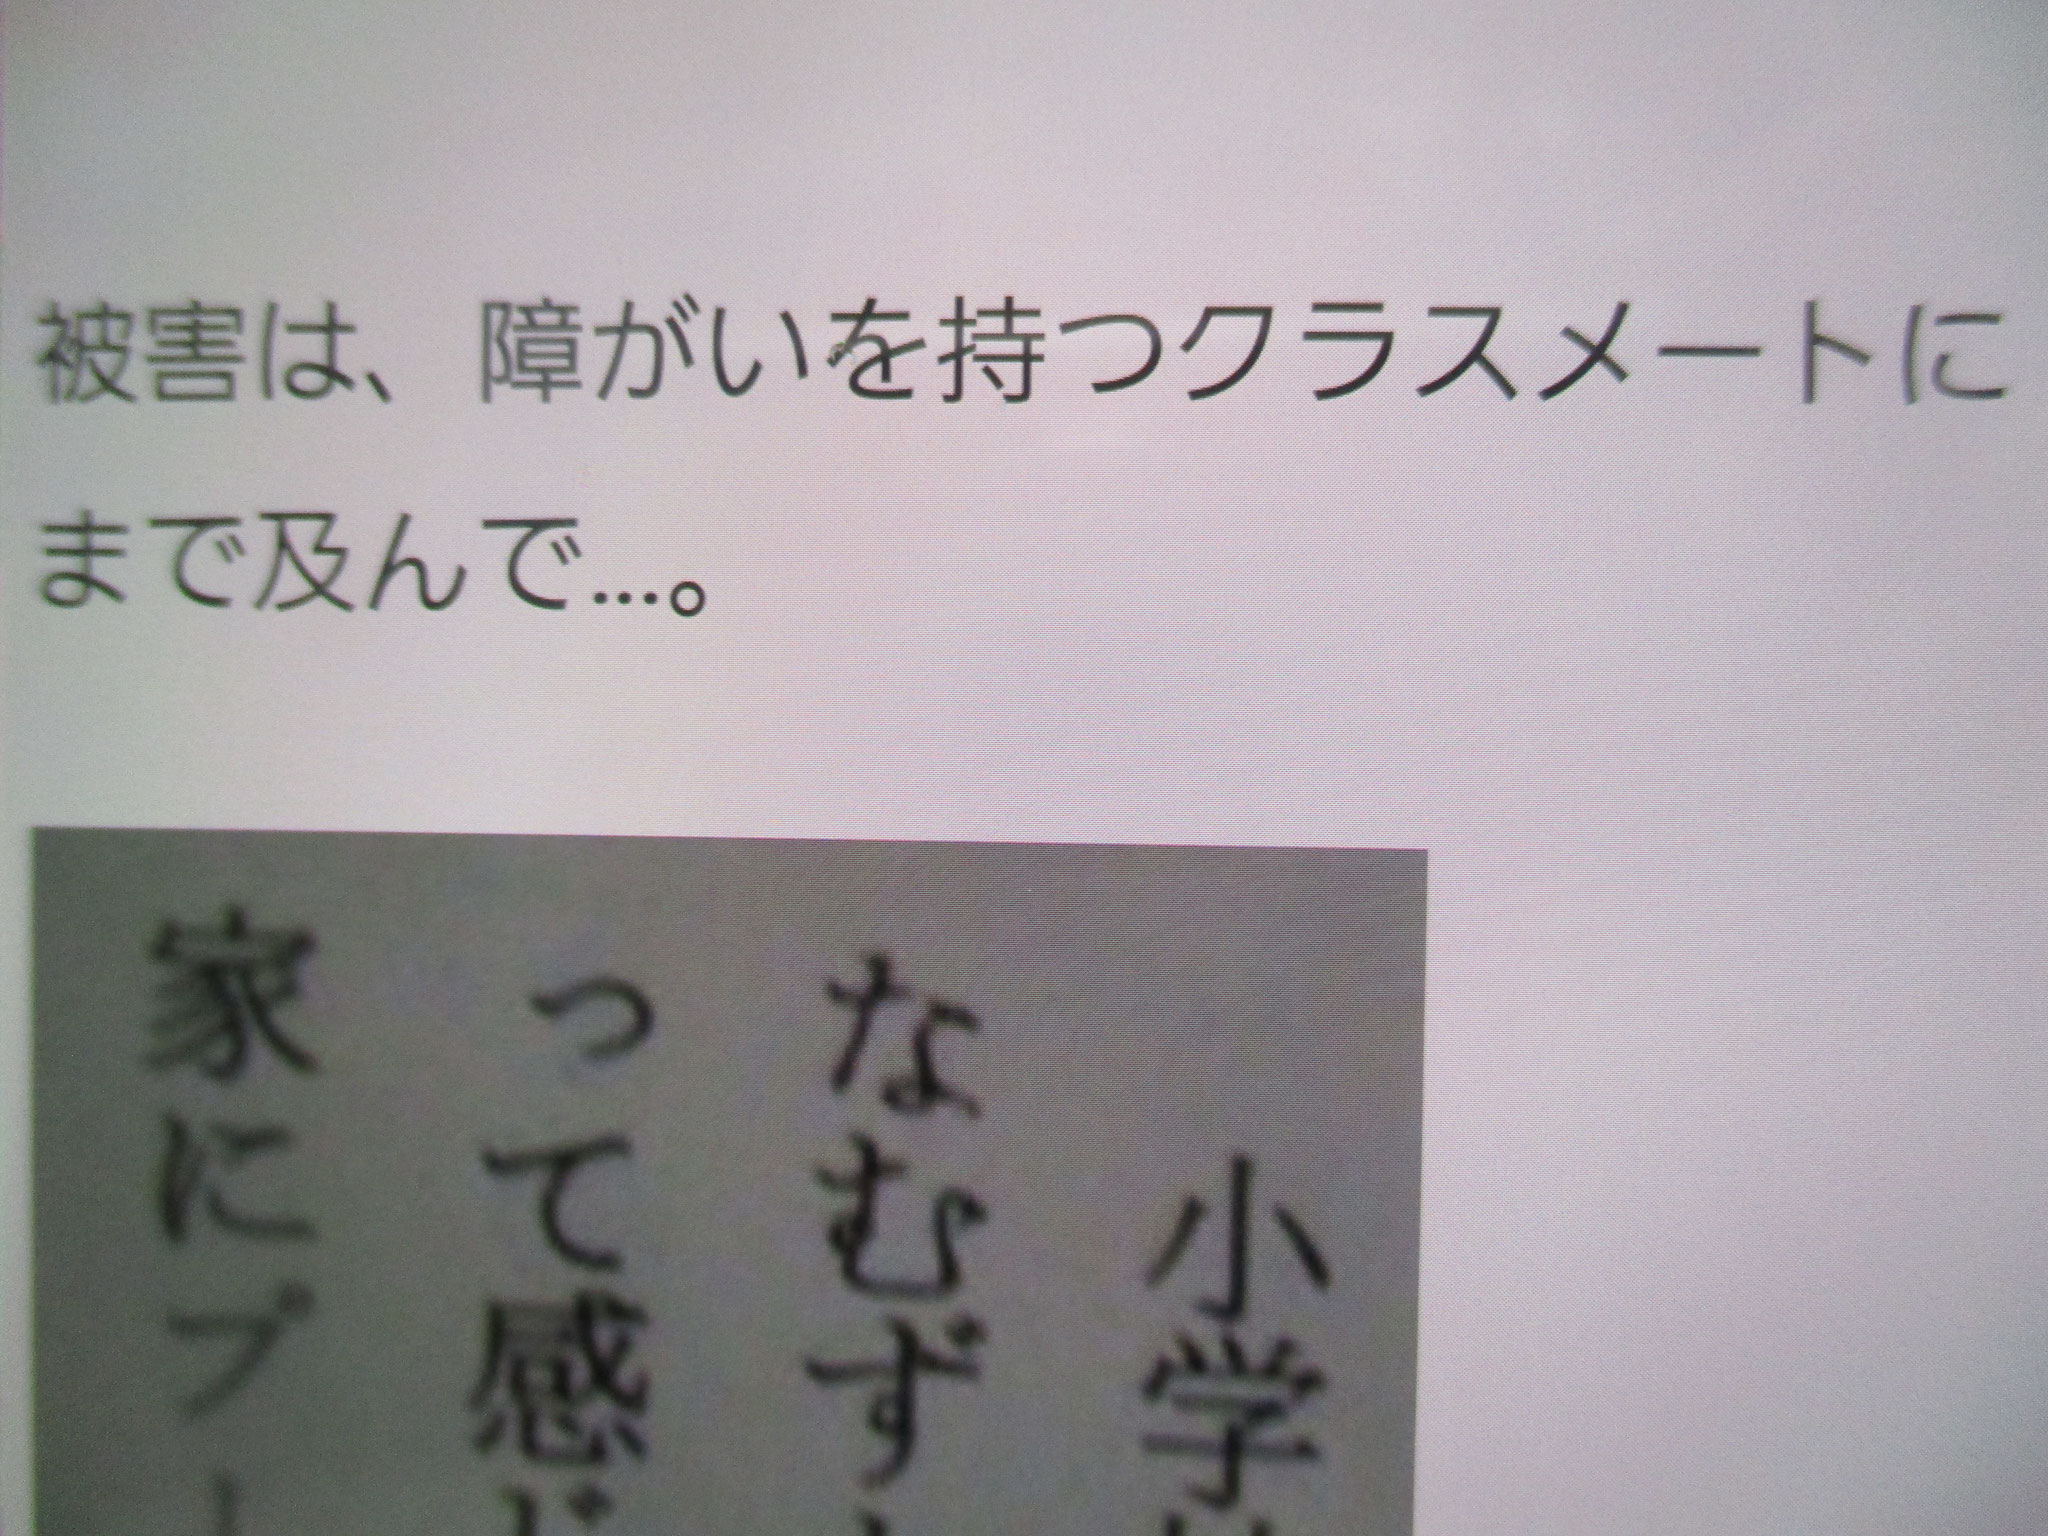 被害は、障がいを持つクラスメートに
まで及んで…。
小学
なむず
って感
家にプ